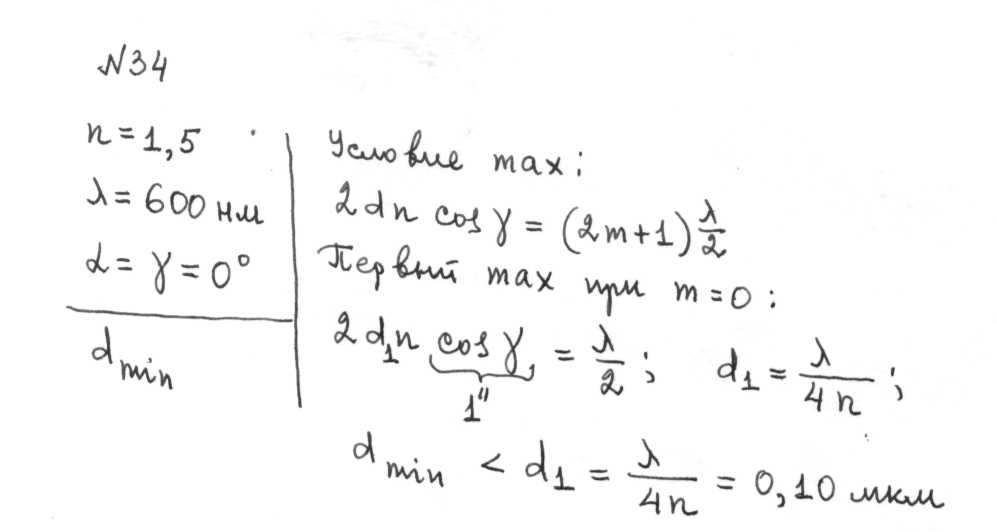 №34
n = 1,5
λ = 600 нм
α = γ = 0°
d min
Условие max:
2dn cos γ = (2m+1) λ/2
Первый max при m = 0:
2d₁n cos γ = λ/2; d₁ = λ/4n;
1"
d min < d₁ = λ/4n = 0,10 мкм